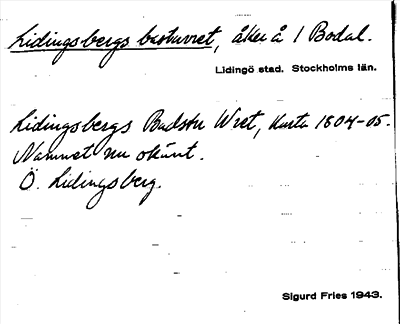 Lidingsbergs bastuvret, åker å 1 Bodal.
Lidingö stad. Stockholms län.
Lidingsbergs Badstu Wret, karta 1804-05.
Namnet nu okänt.
Ö. Lidingsberg.
Sigurd Fries 1943.